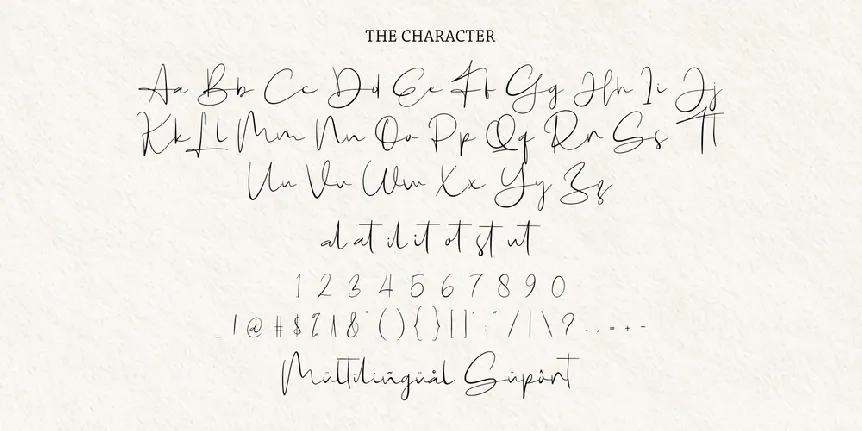 THE CHARACTER
Aa Bb Cc Dd Ee Ff Gg Hh Ii Jj
Kk Ll Mm Nn Oo Pp Qq Rr Ss Tt
Uu Vv Ww Xx Yy Zz
al at il it ot st ut
1 2 3 4 5 6 7 8 9 0
! @ # $ % ^ & * ( ) { } [ ] : " / | \ ? , . = + -
Mültilingüål Süpört